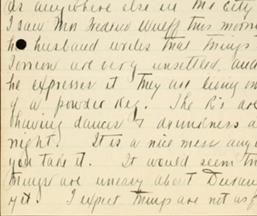 as anywhere else in the city
I saw Mrs Fredrico Wulff this morn
her husband writes that things
Torreon are very unsettled, and
he expresses it they are living on
of a powder keg. The R's are
having dances & drunkness a
night. It is a nice mess any
you take it. It would seem th
things are uneasy about Duran
yet. I expect things are not as g